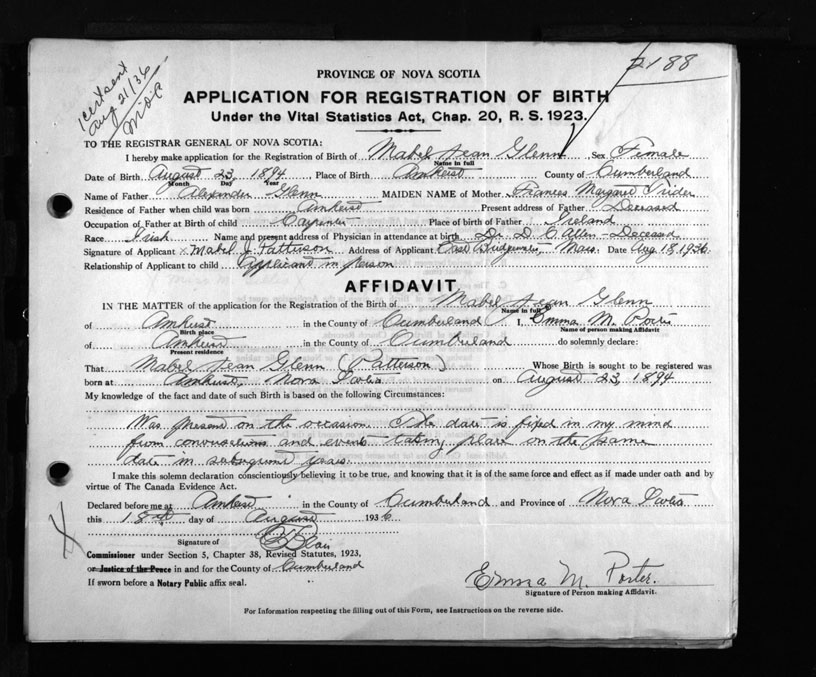 1 cert sent
Aug 21/36
2188
PROVINCE OF NOVA SCOTIA
APPLICATION FOR REGISTRATION OF BIRTH
Under the Vital Statistics Act, Chap. 20, R. S. 1923.
TO THE REGISTRAR GENERAL OF NOVA SCOTIA:
I hereby make application for the Registration of Birth of Mabel Jean Glenn Sex Female
Name in full
Date of Birth August 23, 1894 Place of Birth Amherst County of Cumberland
Month Day Year
Name of Father Alexander Glenn MAIDEN NAME of Mother Frances Margaret
Residence of Father when child was born Amherst Present address of Father Deceased
Occupation of Father at Birth of child Carpenter Place of birth of Father Ireland
Race Irish Name and present address of Physician in attendance at birth Dr. D. C. Allen - Deceased
Signature of Applicant Mabel J. Patterson Address of Applicant East Bridgewater, Mass. Date Aug 18, 1936
Relationship of Applicant to child Applicant in person
AFFIDAVIT
IN THE MATTER of the application for the Registration of the Birth of Mabel Jean Glenn
Name in full
of Amherst in the County of Cumberland I, Emma M. Porter
Birth place Name of person making Affidavit
of Amherst in the County of Cumberland do solemnly declare:
Present residence
That Mabel Jean Glenn (Patterson) Whose Birth is sought to be registered was
born at Amherst, Nova Scotia on August 23, 1894
My knowledge of the fact and date of such Birth is based on the following Circumstances:
Was present on the occasion. The date is fixed in my mind
from conversations and events taking place on the same
date in subsequent years.
I make this solemn declaration conscientiously believing it to be true, and knowing that it is of the same force and effect as if made under oath and by
virtue of The Canada Evidence Act.
Declared before me at Amherst in the County of Cumberland and Province of Nova Scotia
this 18th day of August 1936
Signature of
Commissioner under Section 5, Chapter 38, Revised Statutes, 1923,
or Justice of the Peace in and for the County of Cumberland
If sworn before a Notary Public affix seal.
Emma M. Porter.
Signature of Person making Affidavit.
For Information respecting the filling out of this Form, see Instructions on the reverse side.